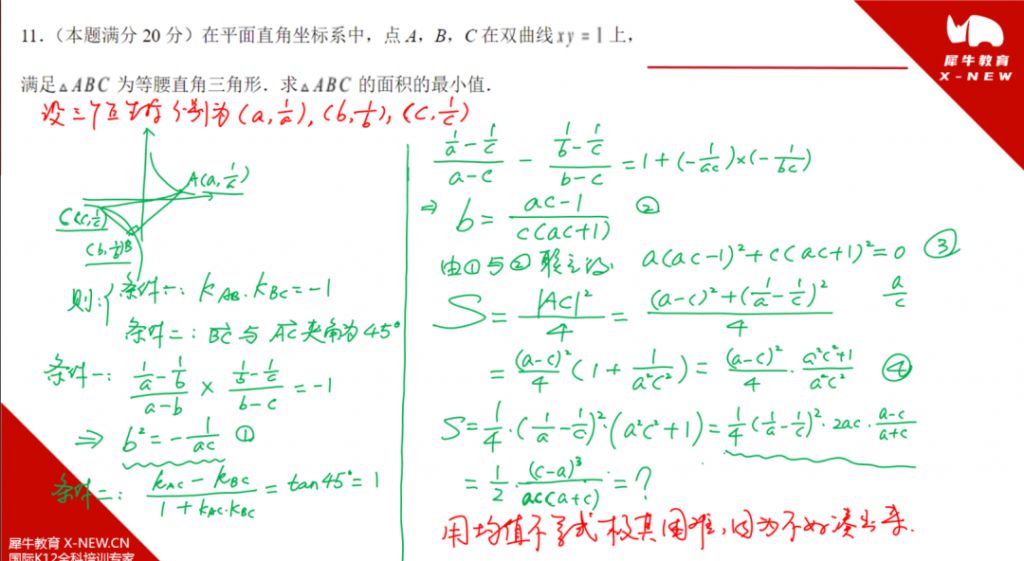 11.（本题满分 20 分）在平面直角坐标系中，点 A，B，C 在双曲线 xy = 1 上，
满足△ABC 为等腰直角三角形．求△ABC 的面积的最小值．
犀牛教育
X-NEW
设三个互坐标分别为 (a, 1/a), (b, 1/b), (c, 1/c)
A(a, 1/a)
C(c, 1/c)
(b, 1/b)B
则：{条件一：k_AB · k_BC = -1
条件二：BC 与 AC 夹角为 45°
条件一：(1/a - 1/b)/(a-b) × (1/b - 1/c)/(b-c) = -1
⇒ b² = -1/(ac) ①
条件二：(k_AC - k_BC)/(1 + k_AC·k_BC) = tan45° = 1
(1/a - 1/c)/(a-c) - (1/b - 1/c)/(b-c) = 1 + (-1/(ac)) × (-1/(bc))
⇒ b = (ac-1)/(c(ac+1)) ②
由①与②联立得 a(ac-1)² + c(ac+1)² = 0 ③
S = |AC|²/4 = ((a-c)² + (1/a - 1/c)²)/4
a/c
= (a-c)²/4 (1 + 1/(a²c²)) = (a-c)²/4 · (a²c²+1)/(a²c²) ④
S = 1/4 · (1/a - 1/c)² · (a²c²+1) = 1/4 (1/a - 1/c)² · 2ac · (a-c)/(a+c)
= 1/2 · (c-a)³/(ac(a+c)) = ?
用均值不等式极其困难，因为不好凑出来.
犀牛教育 X-NEW.CN
国际K12全科培训专家